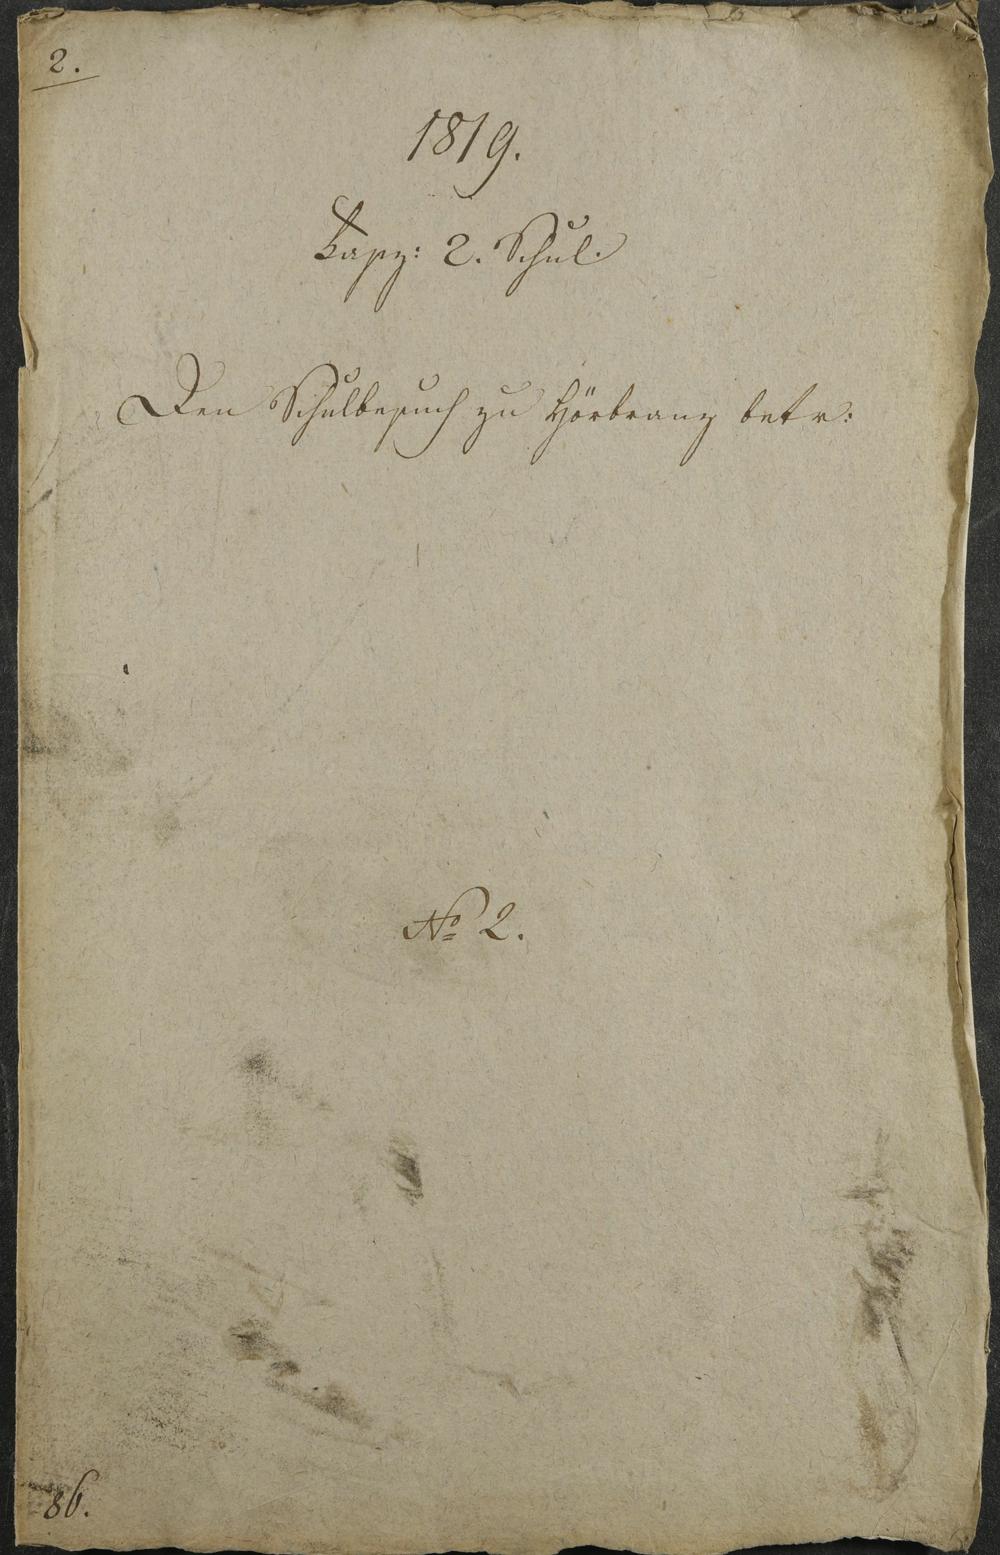 2.
1819.
Fasz: 2. Schul.
Den Schulbesuch zu Hörbranz betr:
No 2.
86.